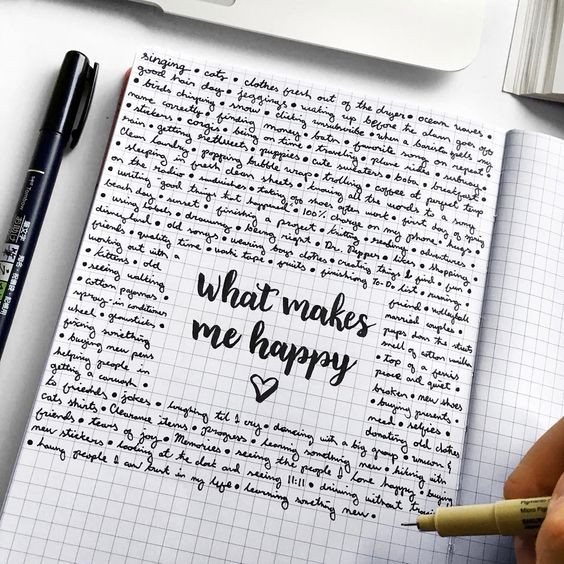 singing • cats • clothes fresh out of the dryer • ocean waves •
good hair day • jeggings • waking up before the alarm goes off
• birds chirping • snow • clicking unsubscribe • when a barista gets my
name correctly • finding money • bats • favorite song on repeat
• stickers • corgis • being on time • traveling • plane rides • sushi •
rain • getting retweets • puppies • cute planters • boba • breakfast •
clean laundry • popping bubble wrap • trolling • coffee at perfect temp
• sleeping in fresh clean sheets • knowing all the words to a song
on the radio • munchies • taking off shoes after work • first day of spring
• writing good things that happened • 100% charge on my phone •
beach day • sunset • finishing a project • knitting • reading •
• using • drawing • being right • Dr. Pepper • adventures •
disneyland • old songs • wearing boys clothes • creating things • shopping
friends • quality time • washi tape • fruits • finishing To Do list • just fun •
working out with a friend • running
• kittens • old married couples • volleyball
• seeing walking pups down the streets
• cotton pajamas smell of cotton
spray in conditioner • top of a ferris
wheel • peace and quiet •
fixing something broken • new shoes
• buying new pens • buying presents •
helping people in need • selfies •
getting a carwash • donating old clothes
to friends • jokes • laughing til I cry • dancing with a big group • unicorn &
cats shirts • Clearance items • progress • learning something new • hiking with
friends • tears of joy • Memories • seeing the people I love happy • buying
new stickers • looking at the clock and seeing 11:11 • driving without traffic
• having people I can trust in my life • learning something new •
what makes
me happy
Tombow